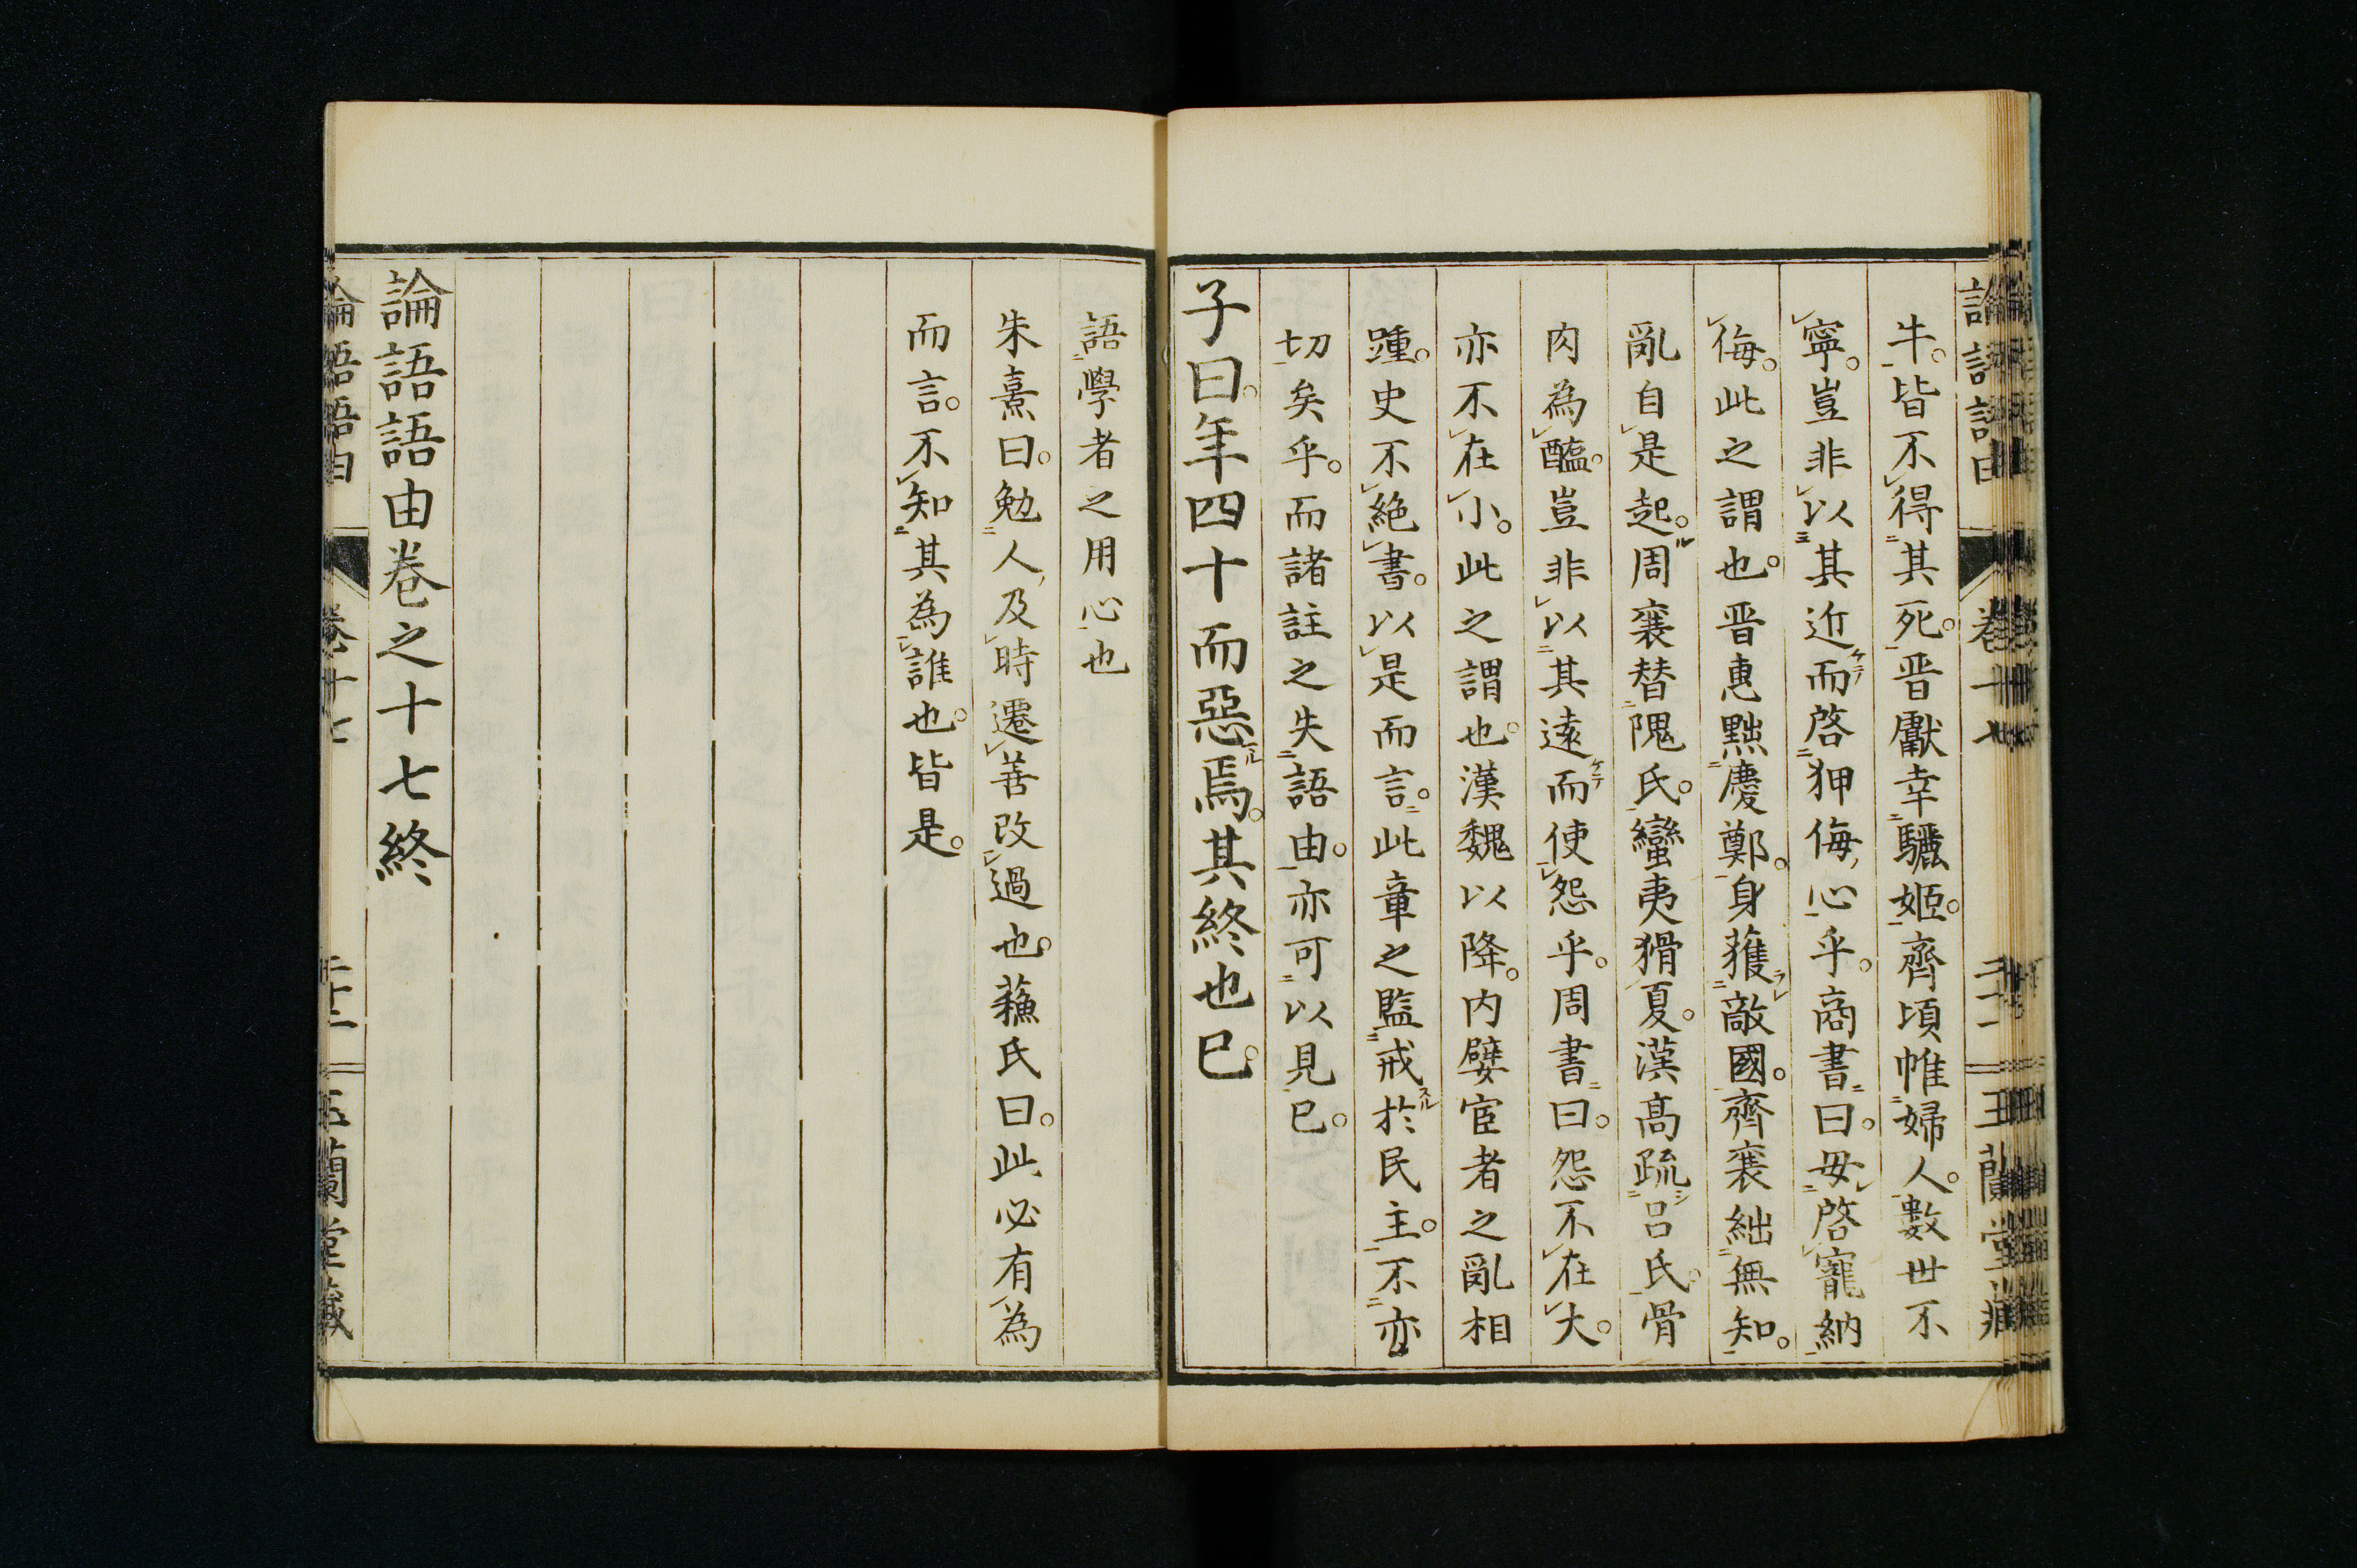 論語語由 卷十七 二十一 玉蘭堂藏
牛。皆不得其死。晋獻幸驪姬。齊頃帷婦人。數世不
寧。豈非以其近而啓狎侮心乎。商書曰。毋啓寵納
侮。此之謂也。晋惠黜慶鄭。身獲敵國。齊襄絀無知。
亂自是起。周襄替隗氏。蠻夷猾夏。漢髙疏呂氏。骨
肉為醢。豈非以其遠而使怨乎。周書曰。怨不在大。
亦不在小。此之謂也。漢魏以降。内嬖宦者之亂相
踵。史不絶書。以是而言。此章之監戒於民主。不亦
切矣乎。而諸註之失語由。亦可以見已。
子曰。年四十而惡焉。其終也已。
語學者之用心也
朱熹曰。勉人及時遷善改過也。蘓氏曰。此必有為
而言。不知其為誰也。皆是。
論語語由卷之十七終
論語語由 卷十七 二十二 玉蘭堂藏